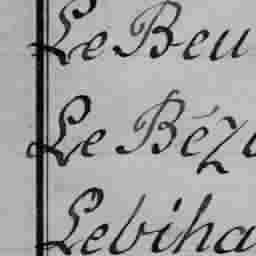 Le Beu
Le Béz
Lebiha